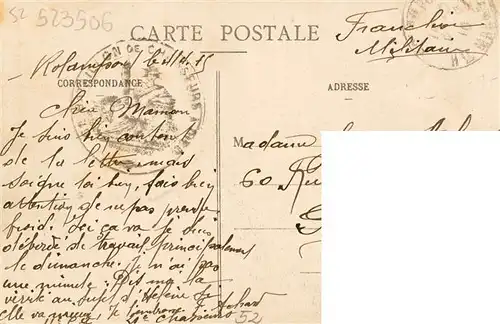 52 523506
CARTE POSTALE
Franchise
Militaire
Rolampon le
CORRESPONDANCE
ADRESSE
Chère Maman
Je suis bien content
de ta lettre mais
soigne toi bien, fais bien
attention de ne pas prendre
froid. Ici ça va je suis
débordé de travail principalement
le dimanche. Je n'ai pas
une minute. Dit moi la
vérité au sujet d'Hélène si
elle va mieux. Je
Chasseurs
52
Madame
60 Rue